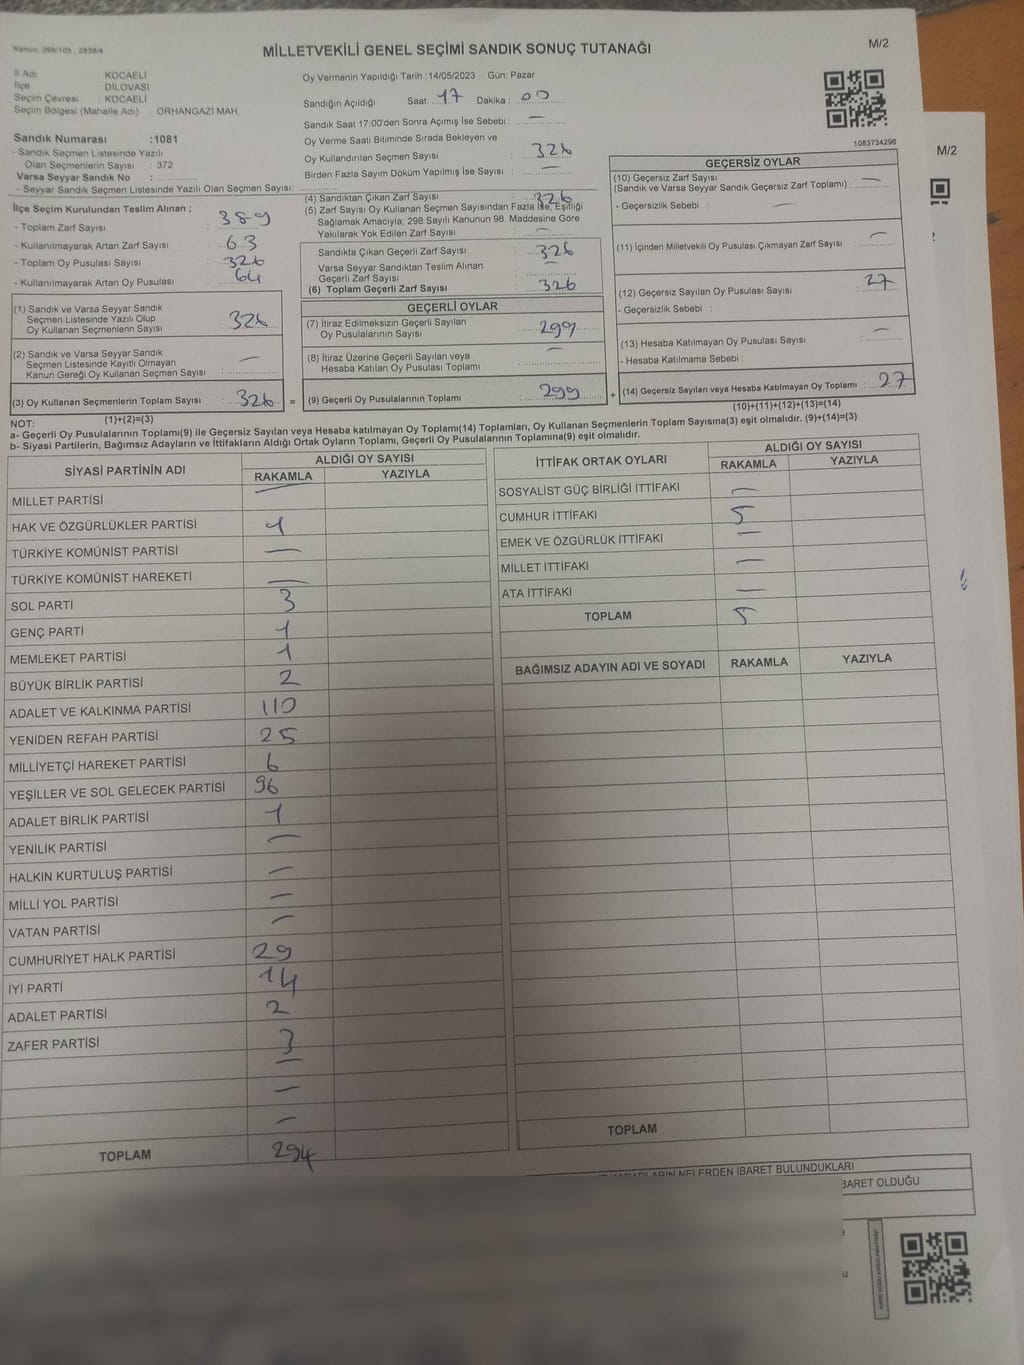 Kanun, 298/105 , 2839/4
MİLLETVEKİLİ GENEL SEÇİMİ SANDIK SONUÇ TUTANAĞI
M/2
İl Adı : KOCAELİ
İlçe : DİLOVASI
Seçim Çevresi : KOCAELİ
Seçim Bölgesi (Mahalle Adı) : ORHANGAZİ MAH.
Sandık Numarası :1081
- Sandık Seçmen Listesinde Yazılı
Olan Seçmenlerin Sayısı : 372
Varsa Seyyar Sandık No :
- Seyyar Sandık Seçmen Listesinde Yazılı Olan Seçmen Sayısı:
İlçe Seçim Kurulundan Teslim Alınan ;
- Toplam Zarf Sayısı : 389
- Kullanılmayarak Artan Zarf Sayısı : 63
- Toplam Oy Pusulası Sayısı : 326
- Kullanılmayarak Artan Oy Pusulası : 64
(1) Sandık ve Varsa Seyyar Sandık
Seçmen Listesinde Yazılı Olup
Oy Kullanan Seçmenlerin Sayısı : 326
(2) Sandık ve Varsa Seyyar Sandık
Seçmen Listesinde Kayıtlı Olmayan
Kanun Gereği Oy Kullanan Seçmen Sayısı : —
(3) Oy Kullanan Seçmenlerin Toplam Sayısı : 326 =
(1)+(2)=(3)
Oy Vermenin Yapıldığı Tarih :14/05/2023 Gün: Pazar
Sandığın Açıldığı Saat: 17 Dakika : 00
Sandık Saat 17:00'den Sonra Açımış İse Sebebi : —
Oy Verme Saati Bitiminde Sırada Bekleyen ve
Oy Kullandırılan Seçmen Sayısı : 326
Birden Fazla Sayım Döküm Yapılmış İse Sayısı : —
(4) Sandıktan Çıkan Zarf Sayısı : 326
(5) Zarf Sayısı Oy Kullanan Seçmen Sayısından Fazla İse, Eşitliği
Sağlamak Amacıyla; 298 Sayılı Kanunun 98. Maddesine Göre
Yakılarak Yok Edilen Zarf Sayısı : —
Sandıkta Çıkan Geçerli Zarf Sayısı : 326
Varsa Seyyar Sandıktan Teslim Alınan
Geçerli Zarf Sayısı : —
(6) Toplam Geçerli Zarf Sayısı : 326
GEÇERLİ OYLAR
(7) İtiraz Edilmeksizin Geçerli Sayılan
Oy Pusulalarının Sayısı : 299
(8) İtiraz Üzerine Geçerli Sayılan veya
Hesaba Katılan Oy Pusulası Toplamı : —
(9) Geçerli Oy Pusulalarının Toplamı : 299 +
1083734296
GEÇERSİZ OYLAR
(10) Geçersiz Zarf Sayısı
(Sandık ve Varsa Seyyar Sandık Geçersiz Zarf Toplamı) : —
- Geçersizlik Sebebi : —
(11) İçinden Milletvekili Oy Pusulası Çıkmayan Zarf Sayısı : —
(12) Geçersiz Sayılan Oy Pusulası Sayısı : 27
- Geçersizlik Sebebi :
(13) Hesaba Katılmayan Oy Pusulası Sayısı : —
- Hesaba Katılmama Sebebi :
(14) Geçersiz Sayılan veya Hesaba Katılmayan Oy Toplamı : 27
(10)+(11)+(12)+(13)=(14)
NOT:
a- Geçerli Oy Pusulalarının Toplamı(9) ile Geçersiz Sayılan veya Hesaba katılmayan Oy Toplamı(14) Toplamları, Oy Kullanan Seçmenlerin Toplam Sayısına(3) eşit olmalıdır. (9)+(14)=(3)
b- Siyasi Partilerin, Bağımsız Adayların ve İttifakların Aldığı Ortak Oyların Toplamı, Geçerli Oy Pusulalarının Toplamına(9) eşit olmalıdır.
SİYASİ PARTİNİN ADI ALDIĞI OY SAYISI
RAKAMLA YAZIYLA
MİLLET PARTİSİ —
HAK VE ÖZGÜRLÜKLER PARTİSİ 1
TÜRKİYE KOMÜNİST PARTİSİ —
TÜRKİYE KOMÜNİST HAREKETİ —
SOL PARTİ 3
GENÇ PARTİ 1
MEMLEKET PARTİSİ 1
BÜYÜK BİRLİK PARTİSİ 2
ADALET VE KALKINMA PARTİSİ 110
YENİDEN REFAH PARTİSİ 25
MİLLİYETÇİ HAREKET PARTİSİ 6
YEŞİLLER VE SOL GELECEK PARTİSİ 96
ADALET BİRLİK PARTİSİ 1
YENİLİK PARTİSİ —
HALKIN KURTULUŞ PARTİSİ —
MİLLİ YOL PARTİSİ —
VATAN PARTİSİ —
CUMHURİYET HALK PARTİSİ 29
İYİ PARTİ 14
ADALET PARTİSİ 2
ZAFER PARTİSİ 3
—
—
—
TOPLAM 294
İTTİFAK ORTAK OYLARI ALDIĞI OY SAYISI
RAKAMLA YAZIYLA
SOSYALİST GÜÇ BİRLİĞİ İTTİFAKI —
CUMHUR İTTİFAKI 5
EMEK VE ÖZGÜRLÜK İTTİFAKI —
MİLLET İTTİFAKI —
ATA İTTİFAKI —
TOPLAM 5
BAĞIMSIZ ADAYIN ADI VE SOYADI RAKAMLA YAZIYLA
TOPLAM
NELERDEN İBARET BULUNDUKLARI
BARET OLDUĞU
M/2